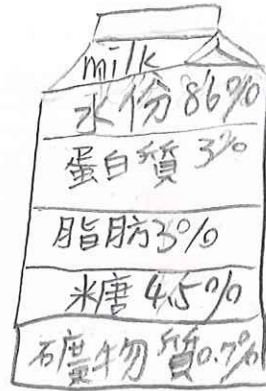 milk
水份86%
蛋白質3%
脂肪3%
糖4.5%
礦物質0.7%